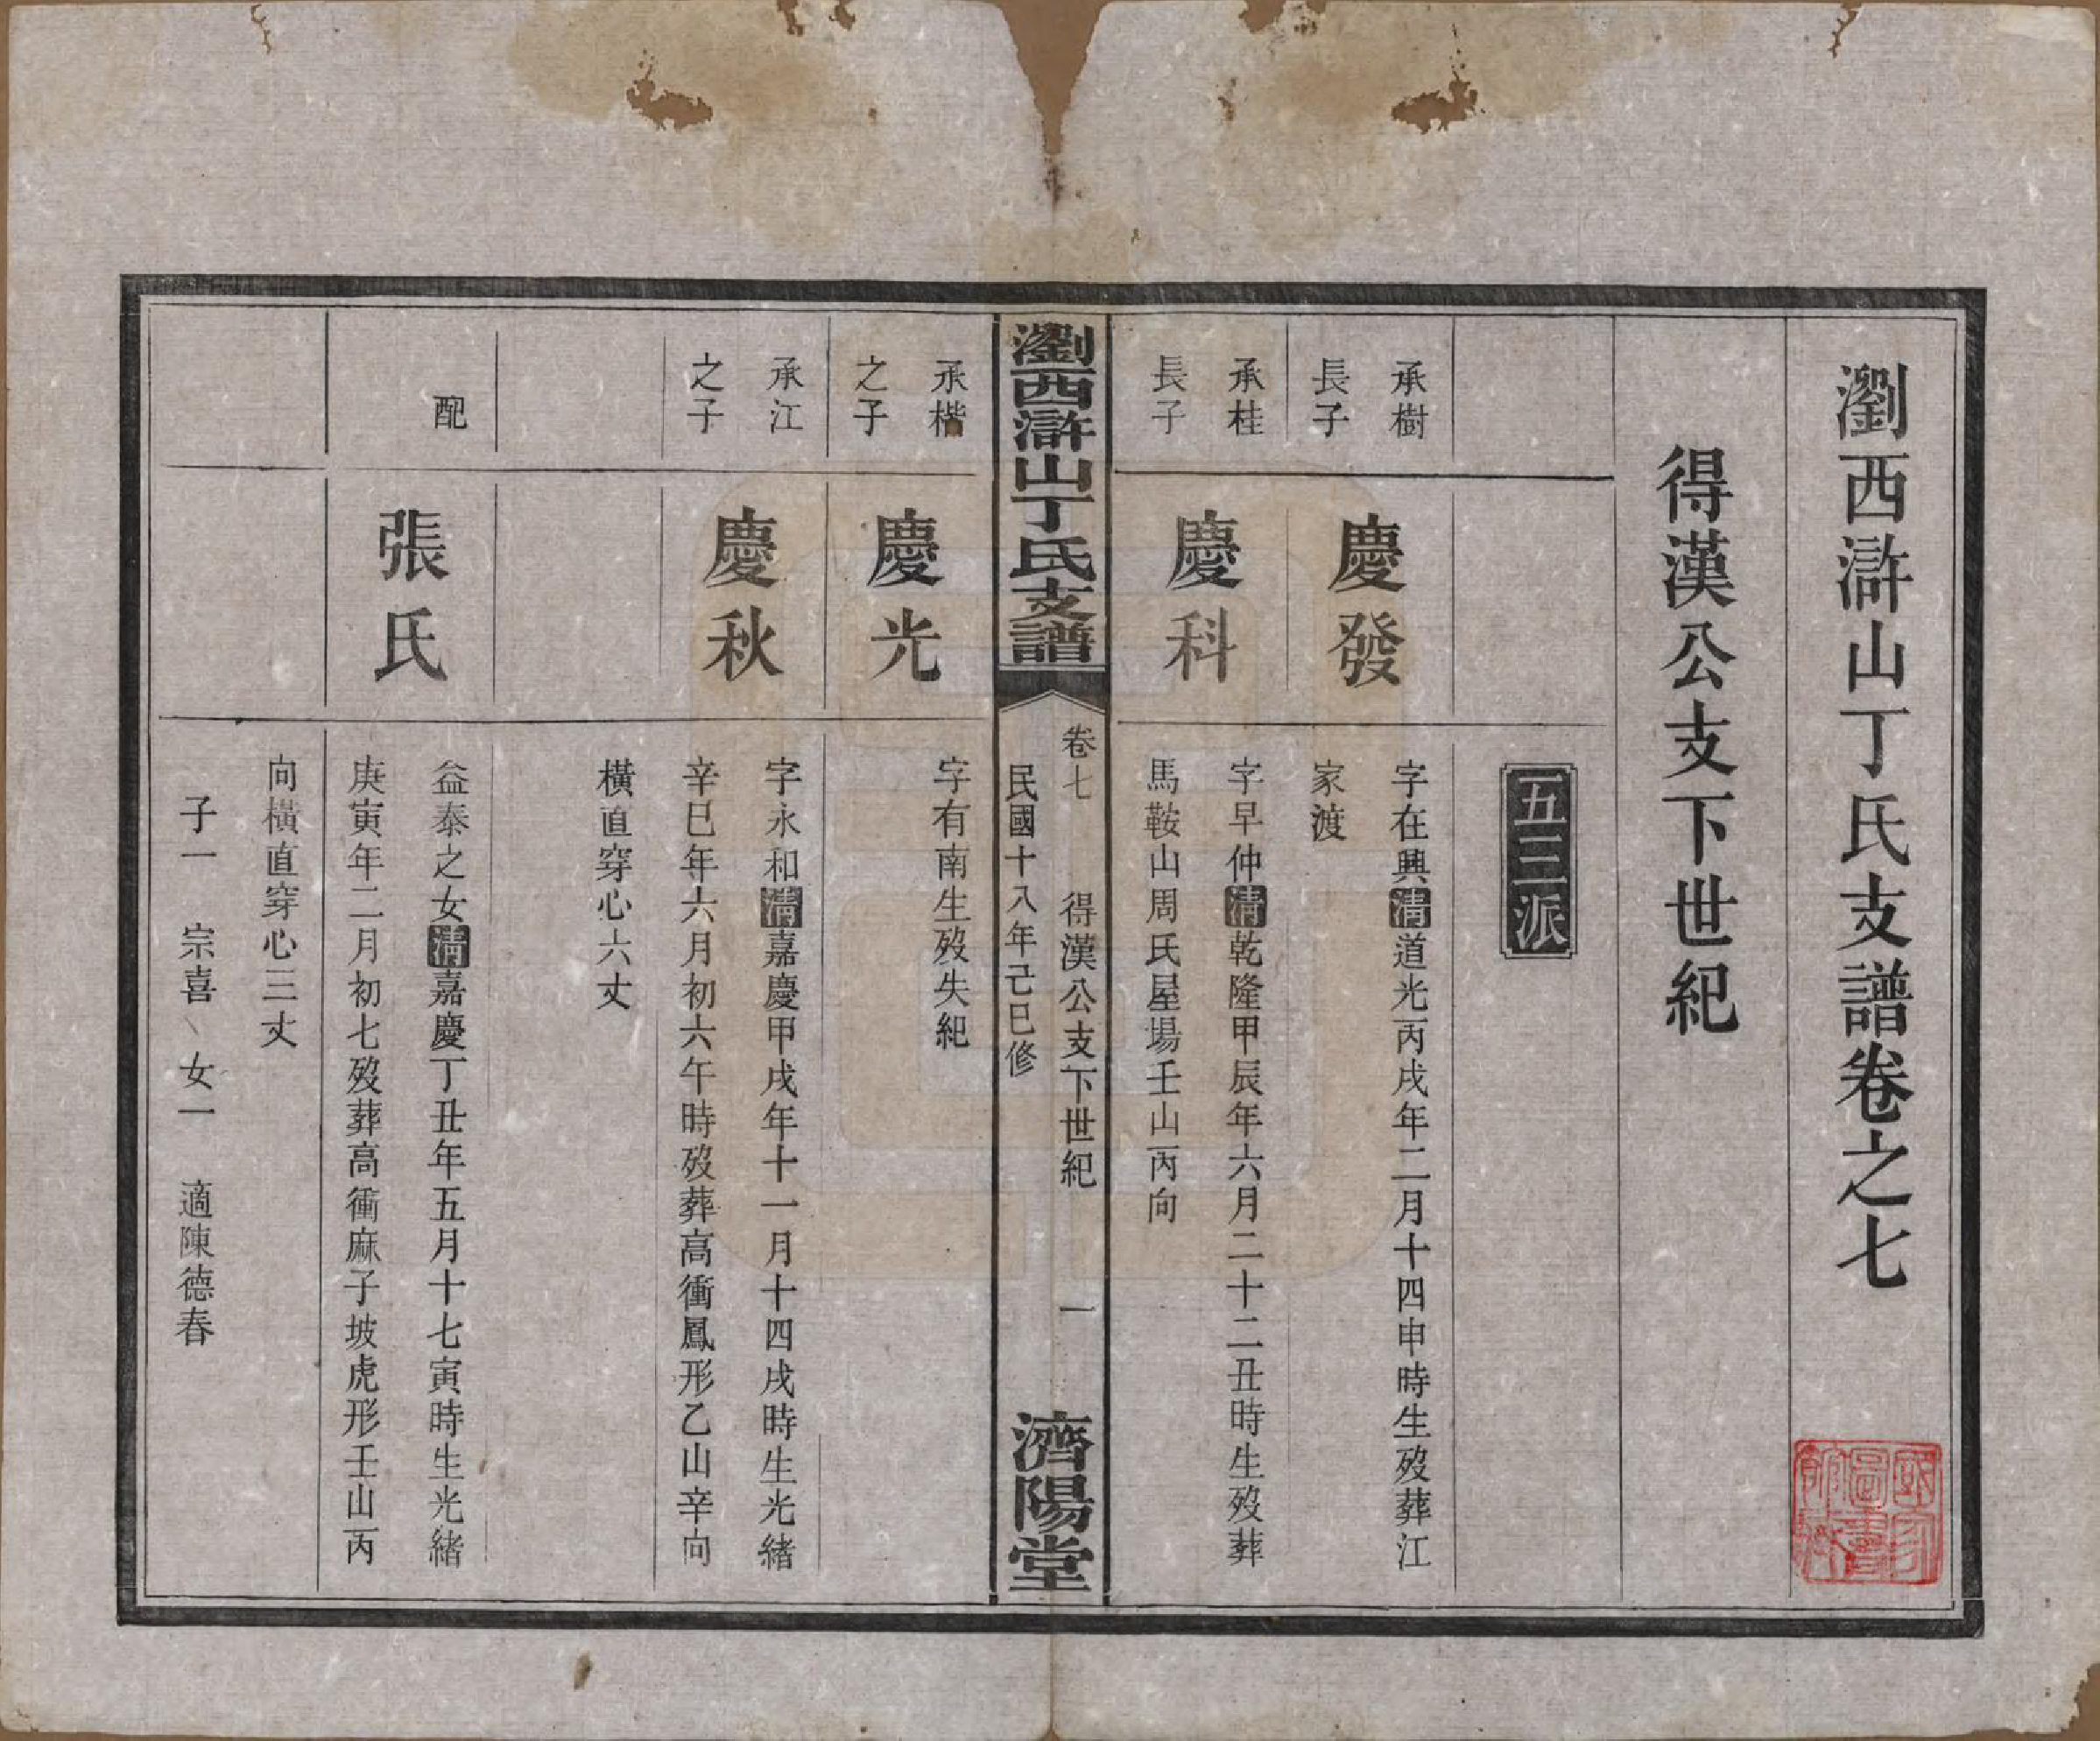 瀏西滸山丁氏支譜卷之七
得漢公支下世紀
五三派
承樹
長子
慶發
字在興清道光丙戌年二月十四申時生歿葬江
家渡
承桂
長子
慶科
字早仲清乾隆甲辰年六月二十二丑時生歿葬
馬鞍山周氏屋場壬山丙向
瀏西滸山丁氏支譜
卷七 得漢公支下世紀 一
民國十八年己巳修
濟陽堂
承楷
之子
慶光
字有南生歿失紀
承江
之子
慶秋
字永和清嘉慶甲戌年十一月十四戌時生光緒
辛巳年六月初六午時歿葬高衝鳳形乙山辛向
橫直穿心六丈
配
張氏
益泰之女清嘉慶丁丑年五月十七寅時生光緒
庚寅年二月初七歿葬高衝麻子坡虎形壬山丙
向橫直穿心三丈
子一 宗喜、女一 適陳德春
國家圖書館藏